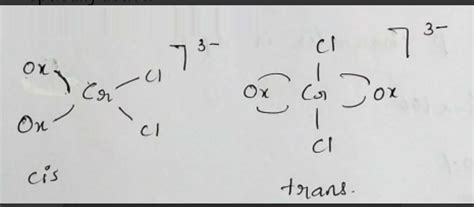 Ox Cr Cl ] 3-
Ox Cl
cis
Cl ] 3-
Ox Cr Ox
Cl
trans.